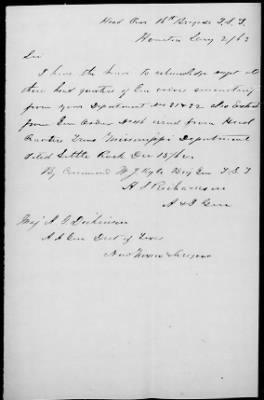 Head Qrs 16th Brigade T.S.T.
Houston Jany 2/63
Sir
I have the honor to acknowledge receipt at
these head quarters of Gen orders emanating
from your Department No 21 & 22 also Extract
from Gen Order No 46 issued from Head
Quarters Trans Mississippi Department
dated Little Rock Dec 15/62
By Command W J Kyle Brig Gen T.S.T
A J Richardson
A A Gen
Maj A G Dickinson
A A Gen Dist of Texas